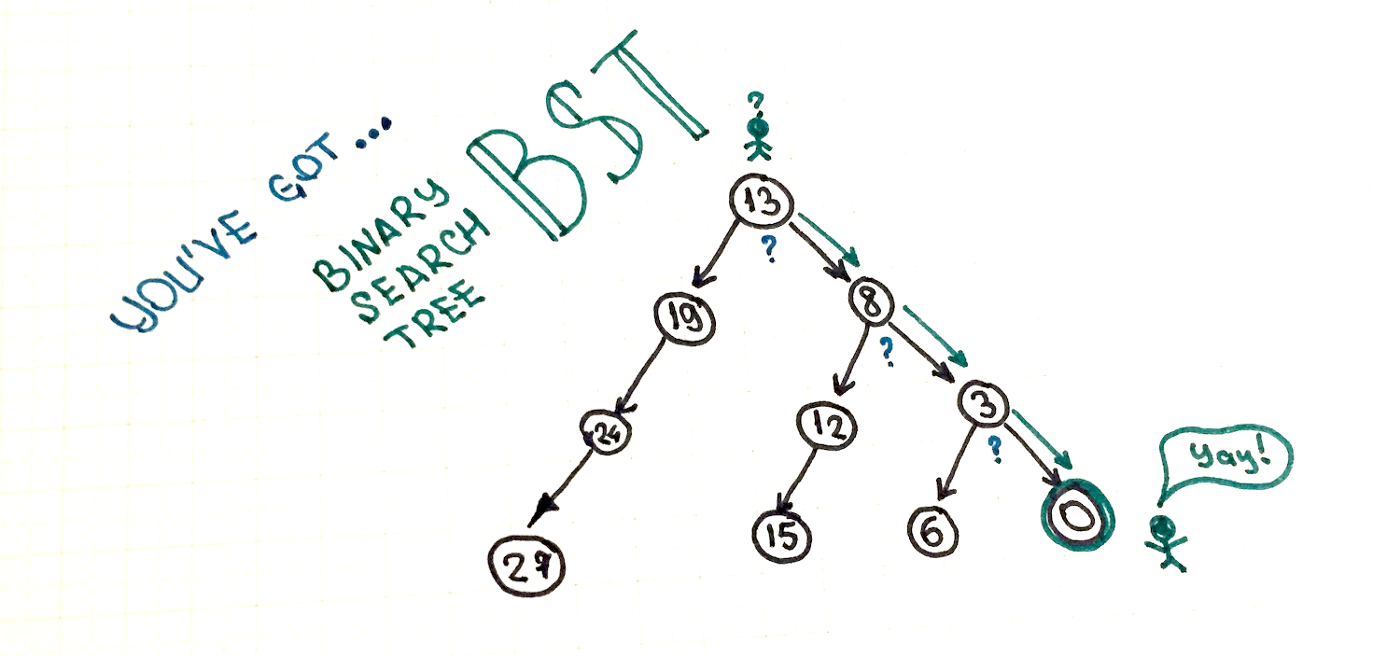 YOU'VE GOT...
BINARY
SEARCH
TREE
BST
?
13
?
19
8
?
24
12
3
?
27
15
6
0
Yay!